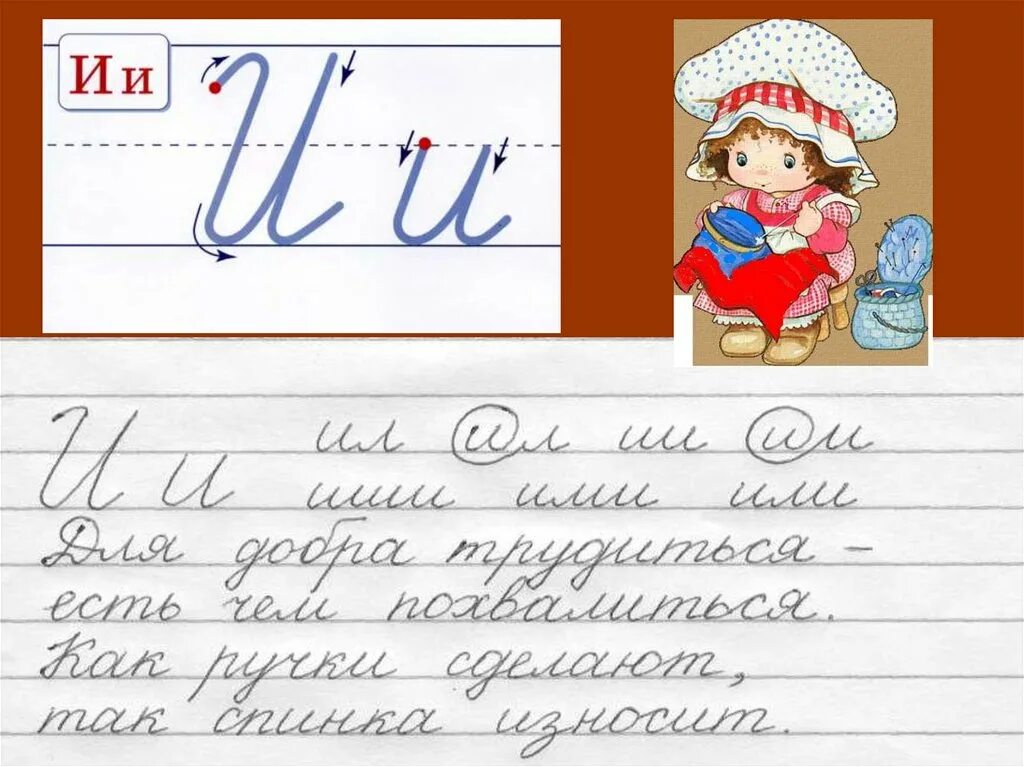 И и
И и
ил ил ии ии
И и ииии ими или
Для добра трудиться –
есть чем похвалиться.
Как ручки сделают,
так спинка износит.